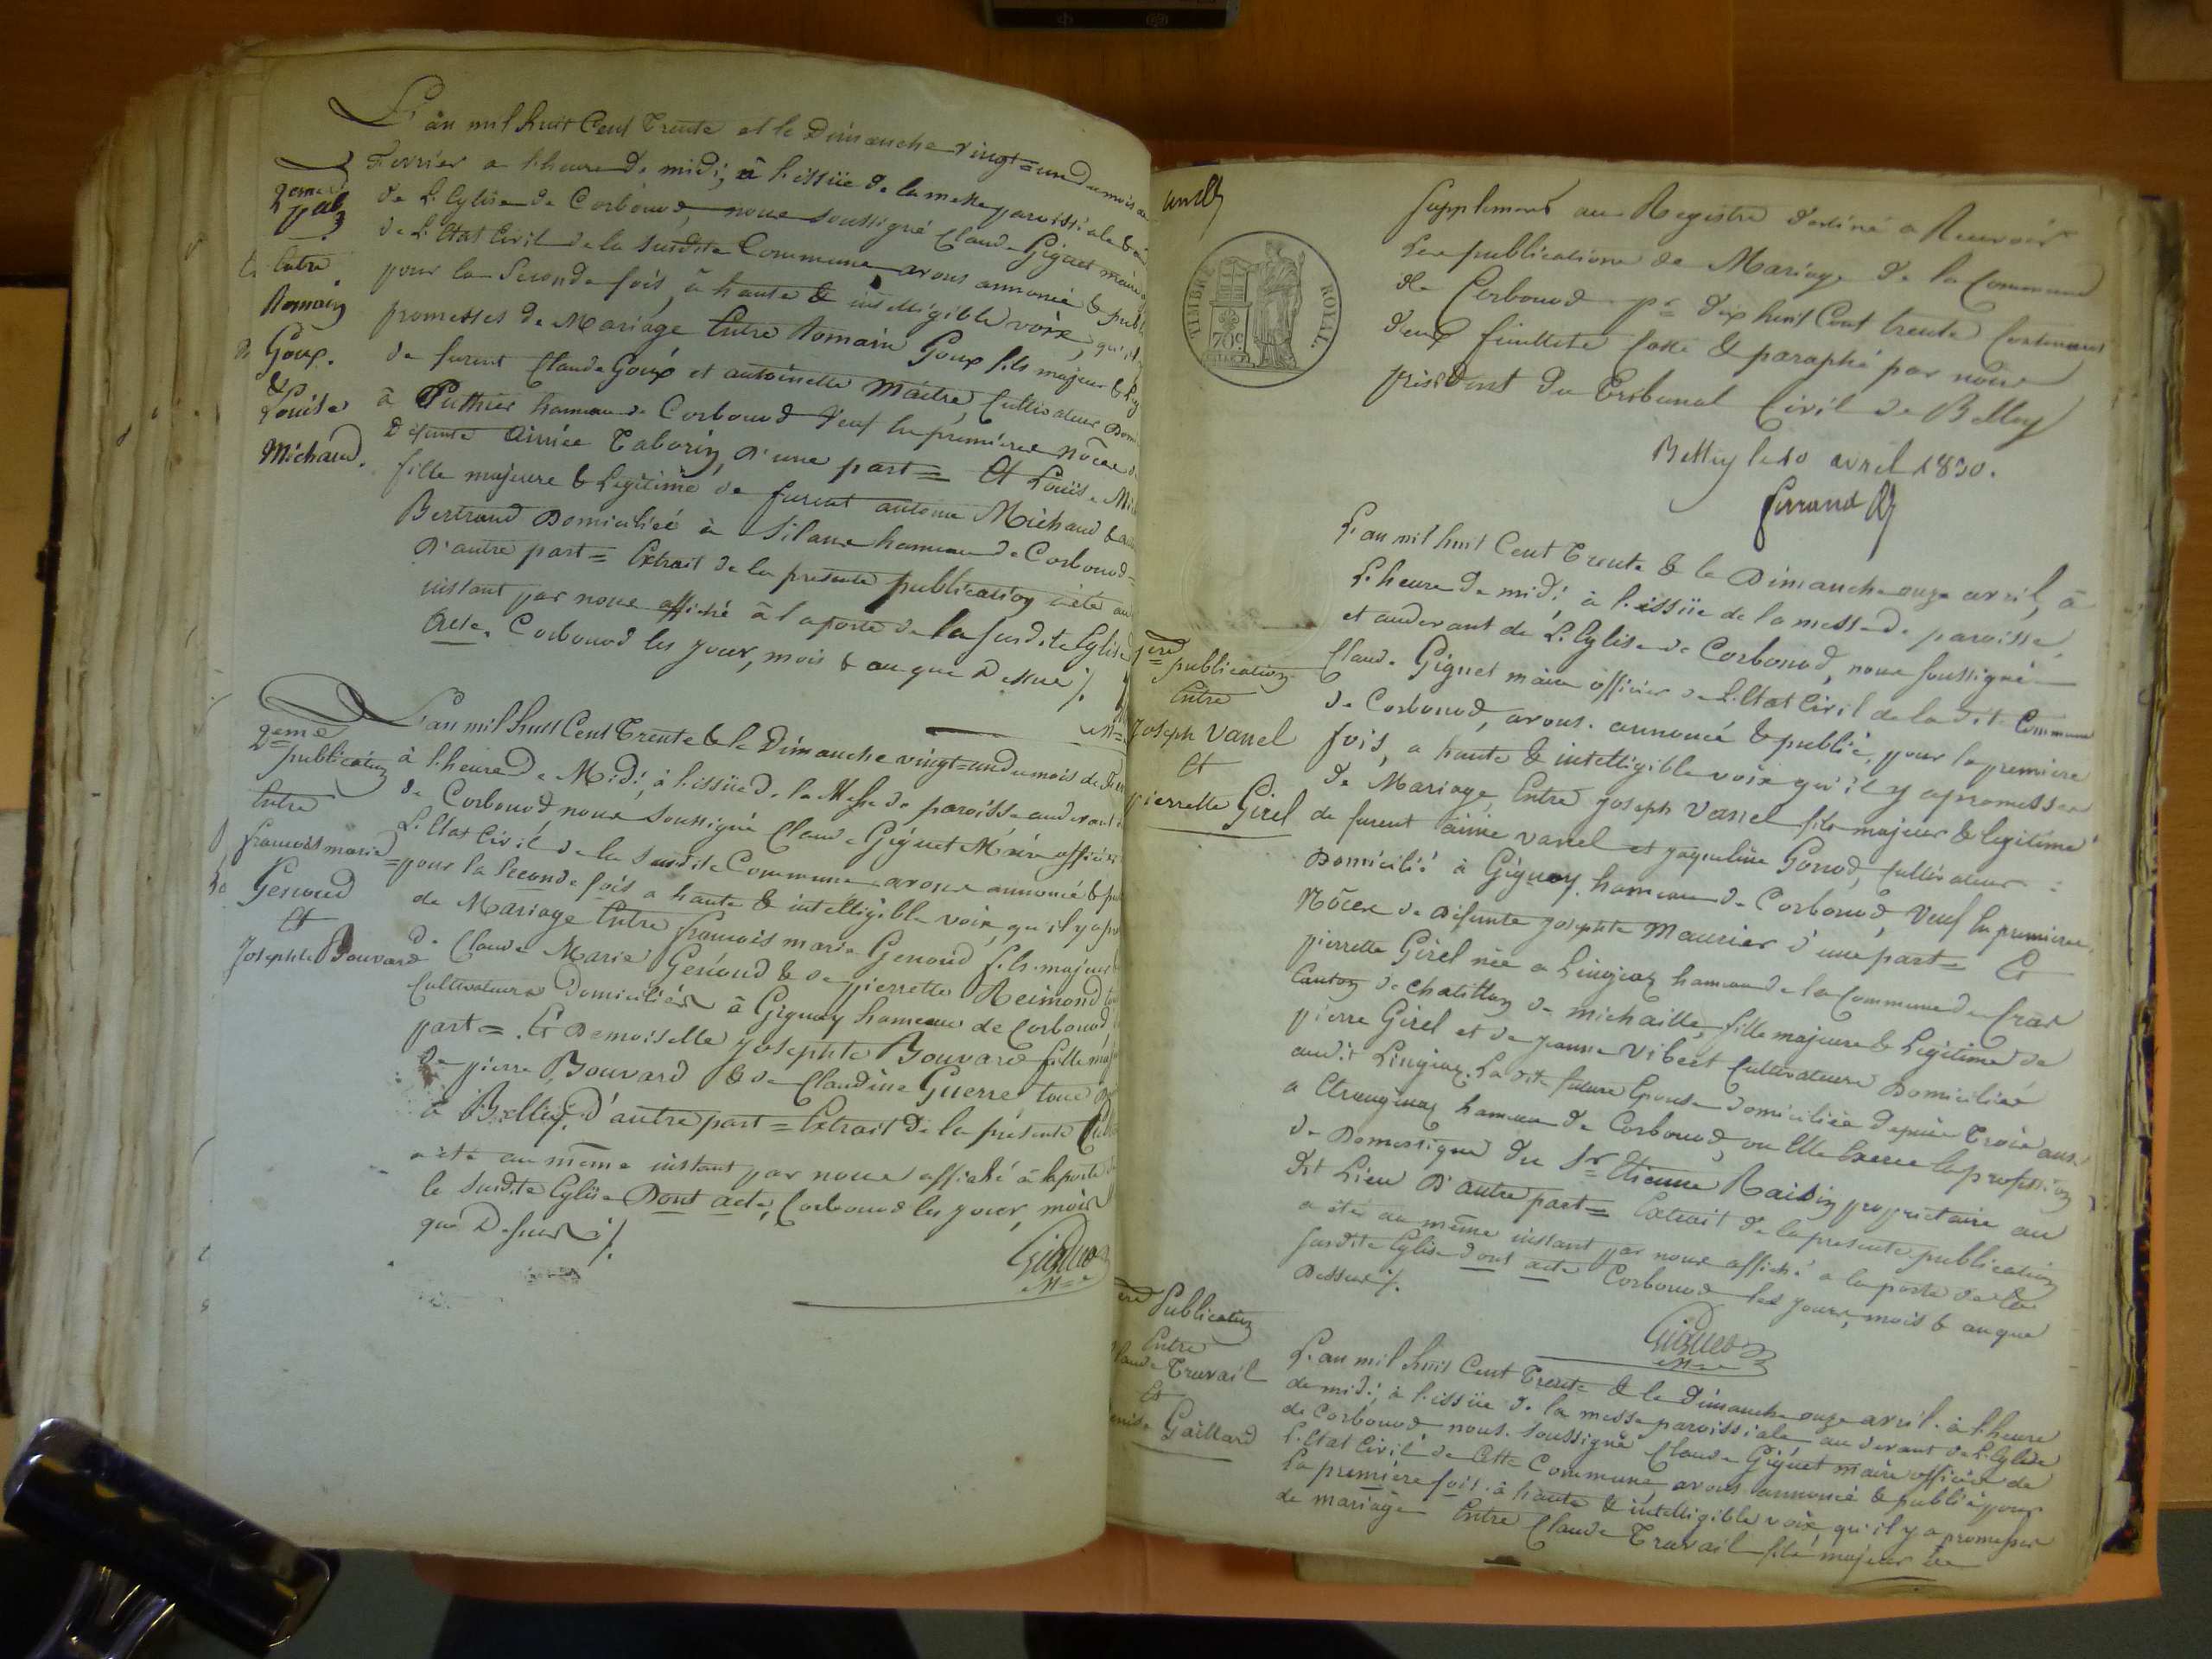 L'an mil huit Cent Trente et le Dimanche vingt=un du mois de
Fevrier a l'heure de midi, à l'issüe de la messe paroissiale
de L'Eglise de Corbonod, nous soussigné Claude Giguet maire
de L'Etat Civil de la susdite Commune avons annoncé & publ
pour la Seconde fois, à haute & intelligible voix, qu'il y
promesses de Mariage Entre Romain Goux fils majeur & Leg
de furent Claude Goux et antoinette Maitre, Cultivateur Dom
à Puthier hameau de Corbonod Veuf En premieres Nôces de
Défunte Aimée Taborin, d'une part = Et Louise Mi
fille majeure & Legitime de furent antoine Michaud &
Bertrand Domiciliée à Silans hameau de Corbonod=
D'autre part = Extrait de la presente publication a été au
instant par nous affiché à la porte de la susdite Eglise
Acte. Corbonod les jour, mois & an que Dessus ./.
2eme
pub
Entre
Romain
Goux.
&
Louise
Michaud.
L'an mil huit Cent Trente & le Dimanche vingt=un du mois de Fev
à l'heure de Midi, à l'issüe de la Messe de paroisse au devant
de Corbonod nous soussigné Claude Giguet Maire officier
L'Etat Civil de la susdite Commune avons annoncé & pu
pour la Seconde fois a haute & intelligible voix, qu'il y a pro
de Mariage Entre francois marie Genoud fils majeur
de Claude Marie Genoud & de pierrette Reimond
Cultivateurs Domiciliés à Gigney hameau de Corbonod
part =. Et Demoiselle Josephte Bouvard fille maj
de pierre Bouvard & de Claudine Guerre tous
à Belley, d'autre part = Extrait de la présente Pu
a été au même instant par nous affiché à la porte
le susdite Eglise Dont acte, Corbonod les jour, mois
que Dessus ./.
Giguet
2eme
publication
Entre
francois marie
Genoud
Et
Josephte Bouvard
TIMBRE ROYAL.
70c
Supplement au Registre destiné a Recevoir
Les publications de Mariage de la Commune
de Corbonod pr. dix huit Cent trente Contenant
deux feuillets Coté & paraphé par nous
président du Tribunal Civil de Belley
Belley le 10 avril 1830.
Ferrand
L'an mil huit Cent Trente & le Dimanche onze avril, à
L'heure de midi, à l'issüe de la messe de paroisse,
et au devant de L'Eglise de Corbonod, nous soussigné
Claude Giguet maire officier de L'Etat Civil de la dite Commune
de Corbonod, avons annoncé & publié, pour la premiere
fois, a haute & intelligible voix qu'il y a promesses
de Mariage, Entre Joseph Vanel fils majeur & legitime
de furent aimé vanel et jaqueline Gonod, Cultivateur
Domicilié à Gigney hameau de Corbonod, Veuf En premieres
Nôces de Défunte Josephte Maurier d'une part = Et
pierrette Girel née a Lingiaz hameau de la Commune de Craz
Canton de Chatillon de michaille, fille majeure & Legitime de
pierre Girel et de jeanne Vibert Cultivateurs Domiciliés
audit Lingiaz. La dite future Epouse domiciliée Depuis Trois ans
a Etranginaz hameau de Corbonod, ou Elle Exerce la profession
de Domestique du Sr. Etienne Raisin proprietaire au
dit Lieu D'autre part = Extrait de la presente publication
a été au même instant par nous affiché a la porte de la
susdite Eglise dont acte Corbonod les jour, mois & an que
Dessus ./.
Giguet
1ere
publication
Entre
Joseph Vanel
Et
pierrette Girel
L'an mil huit Cent Trente & le Dimanche onze avril. à l'heure
de midi, à l'issüe de la messe paroissiale au devant de L'Eglise
de Corbonod nous. soussigné Claude Giguet maire officier de
L'Etat Civil de Cette Commune, avons annoncé & publié pour
La premiere fois. à haute & intelligible voix, qu'il y a promesses
de mariage Entre Claude Travail fils majeur &
Publication
Entre
Claude Travail
Et
Gaillard